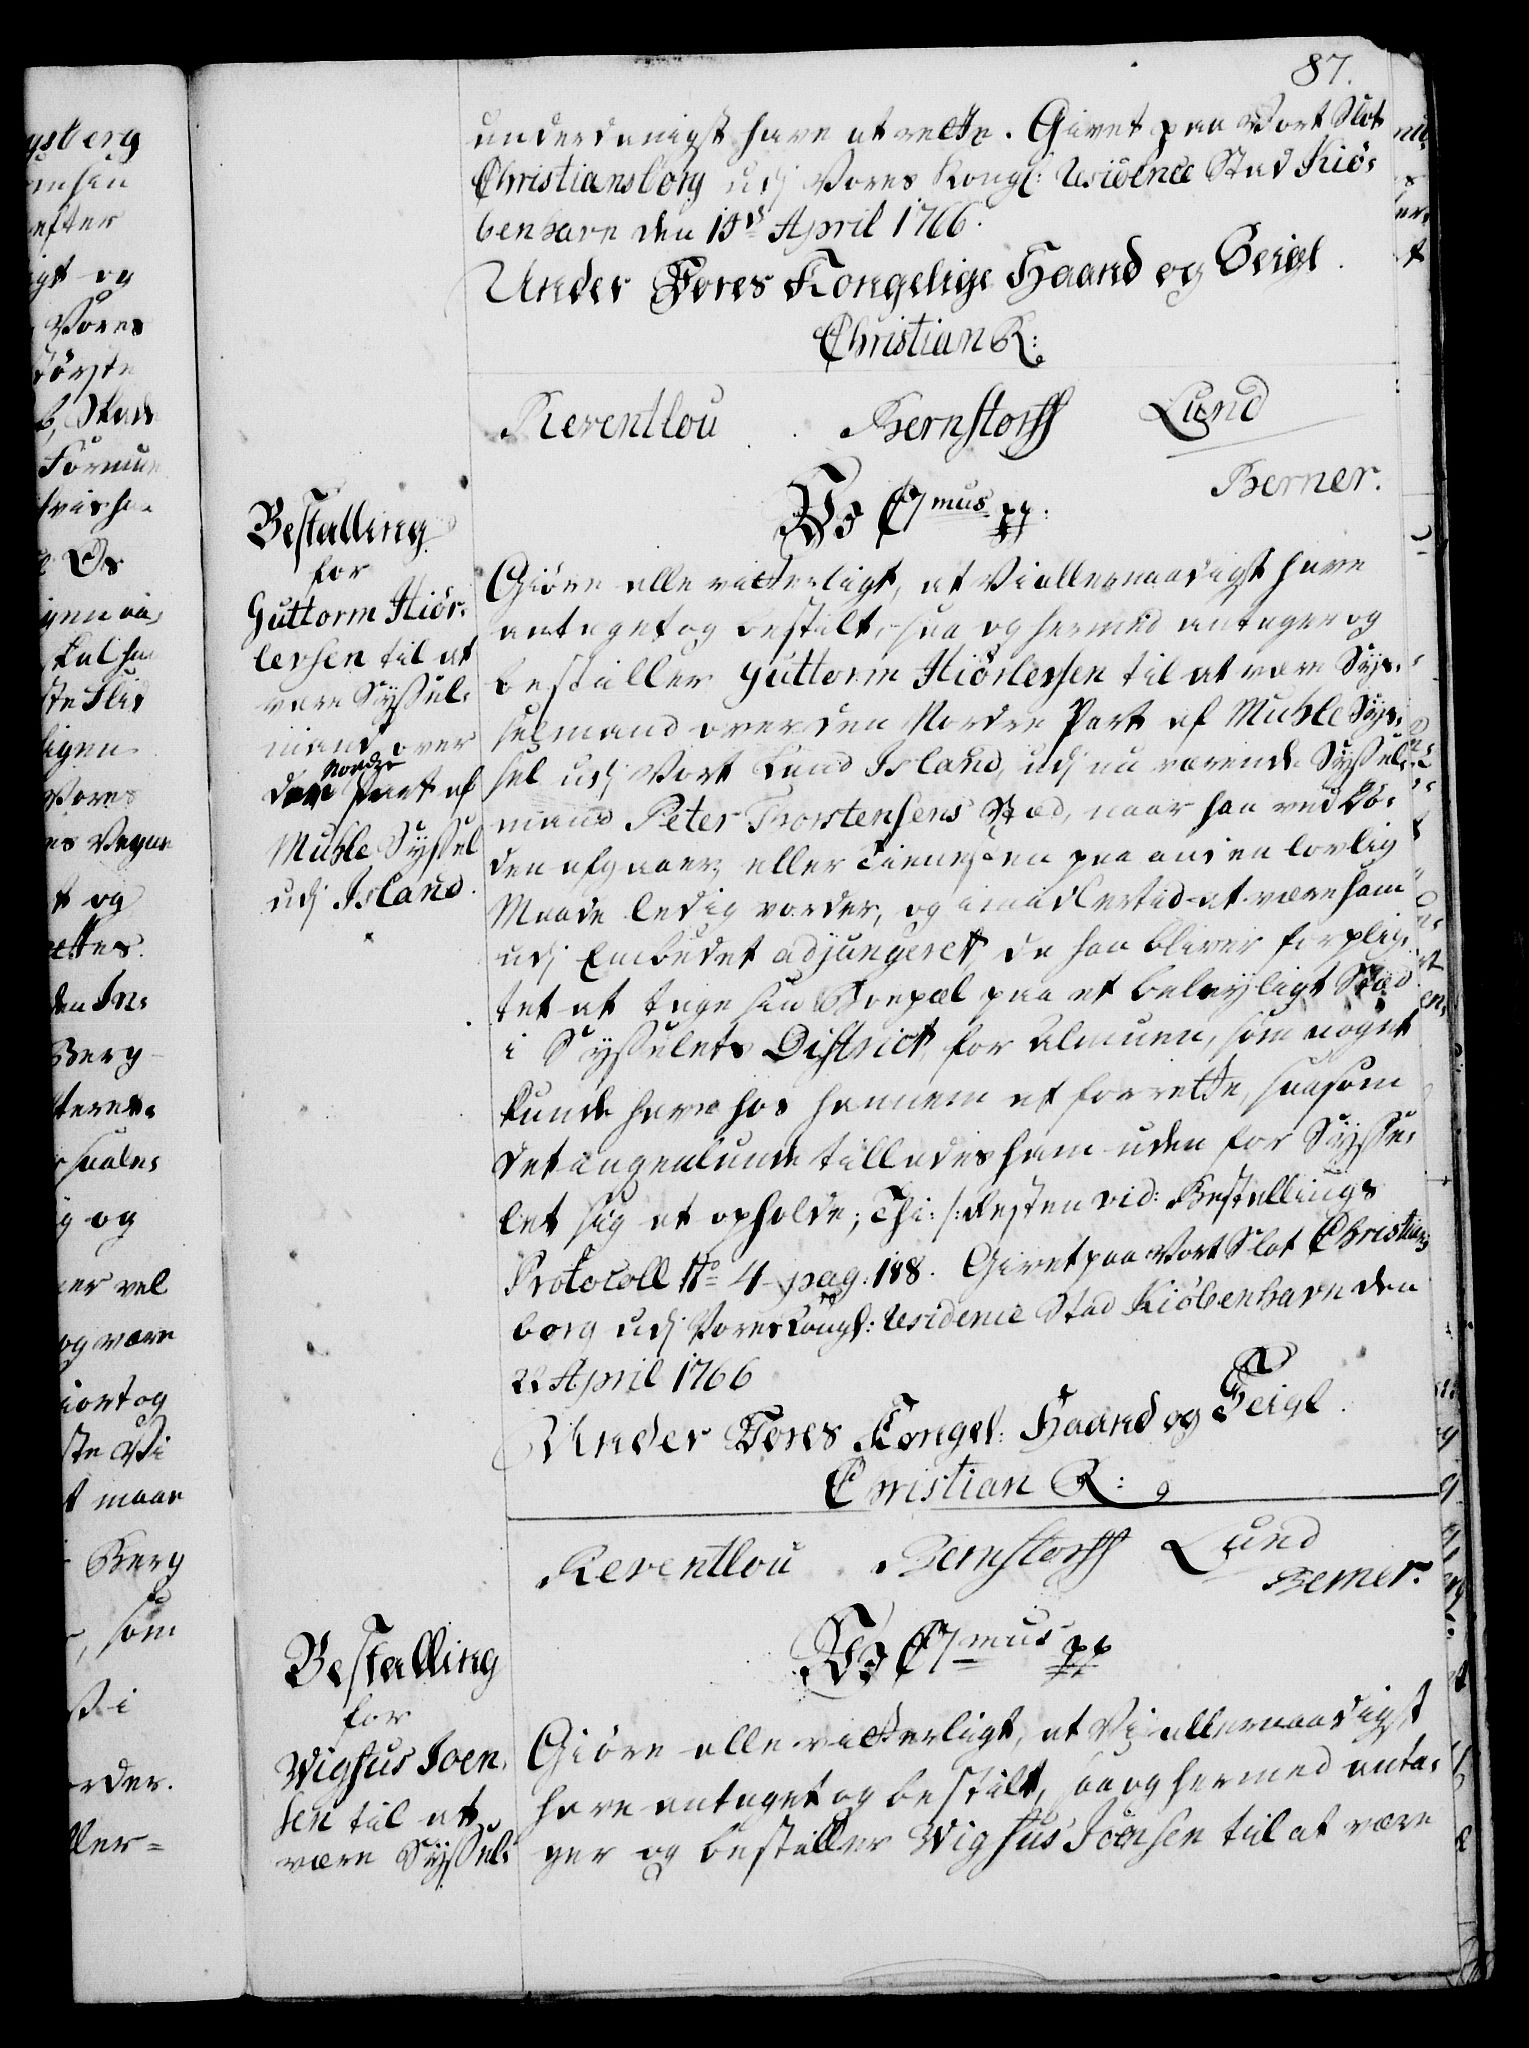 87.
underdanigst have at rette. Givet paa Vort Slot
Christiansborg udj Vores Kongl: Residence Stad Kiö-
benhavn den 18de April 1766.
Under Vores Kongelige Haand og Seigl.
Christian R:
Reventlou Bernstorff Lund
Berner.
Bestalling
for
Guttorm Hiör-
lersen til at
være Syssel-
mand over
den Nordre Part af
Muhle Syssel
udj Island.
Wi C7mus pp:
Giöre alle vitterligt, at Vi allernaadigst have
antaget og bestilt, saa og hermed antager og
bestiller Guttorm Hiörlersen til at være Sys-
selmand over den Nordre Part af Muhle Sys-
sel udj Vort Land Island, udj nu værende Syssel-
mand Peter Thorstensens Stæd, naar han ved Dö-
den afgaaer, eller Tienesten paa anden lovlig
Maade ledig vorder, og imidlertid at være ham
udj Embedet adjungeret, da han bliver forplig-
tet at tage sin Boepæl paa et beleyligt Stæd
i Sysselets District for Almuen, som noget
kunde have hos hannem at forrette, saasom
det ingenlunde tillades ham uden for Sysse-
let sig at opholde; Thi: /: Resten vid: Bestallings
Protocoll No 4 pag: 188. Givet paa Vort Slot Christians-
borg udj Vores Kongl: Residence Stad Kiöbenhavn den
22 April 1766
Under Vores Kongel: Haand og Seigl.
Christian R:
Reventlou Bernstorff Lund
Berner.
Bestalling
for
Wigfus Joen-
sen til at
være Syssel-
Wi C7mus pp
Giöre alle vitterligt, at Vi allernaadigst
have antaget og bestilt, saa og hermed anta-
ger og bestiller Wigfus Joensen til at være